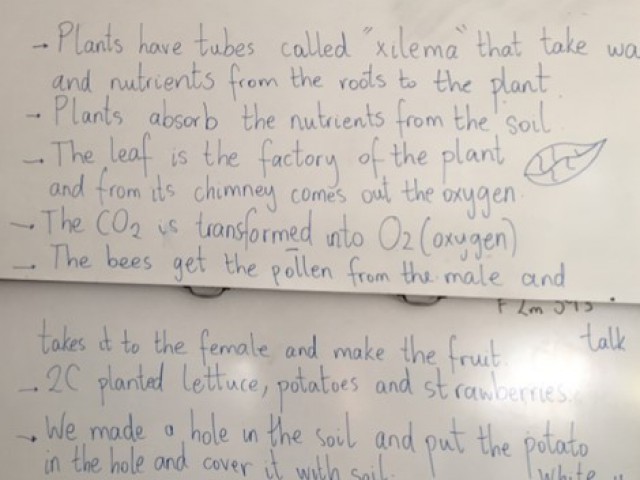 → Plants have tubes called "xilema" that take wa
and nutrients from the roots to the plant.
→ Plants absorb the nutrients from the soil
→ The leaf is the factory of the plant
and from its chimney comes out the oxygen.
→ The CO2 is transformed into O2 (oxygen)
→ The bees get the pollen from the male and
takes it to the female and make the fruit.
talk
→ 2C planted lettuce, potatoes and strawberries.
→ We made a hole in the soil and put the potato
in the hole and cover it with soil.
White